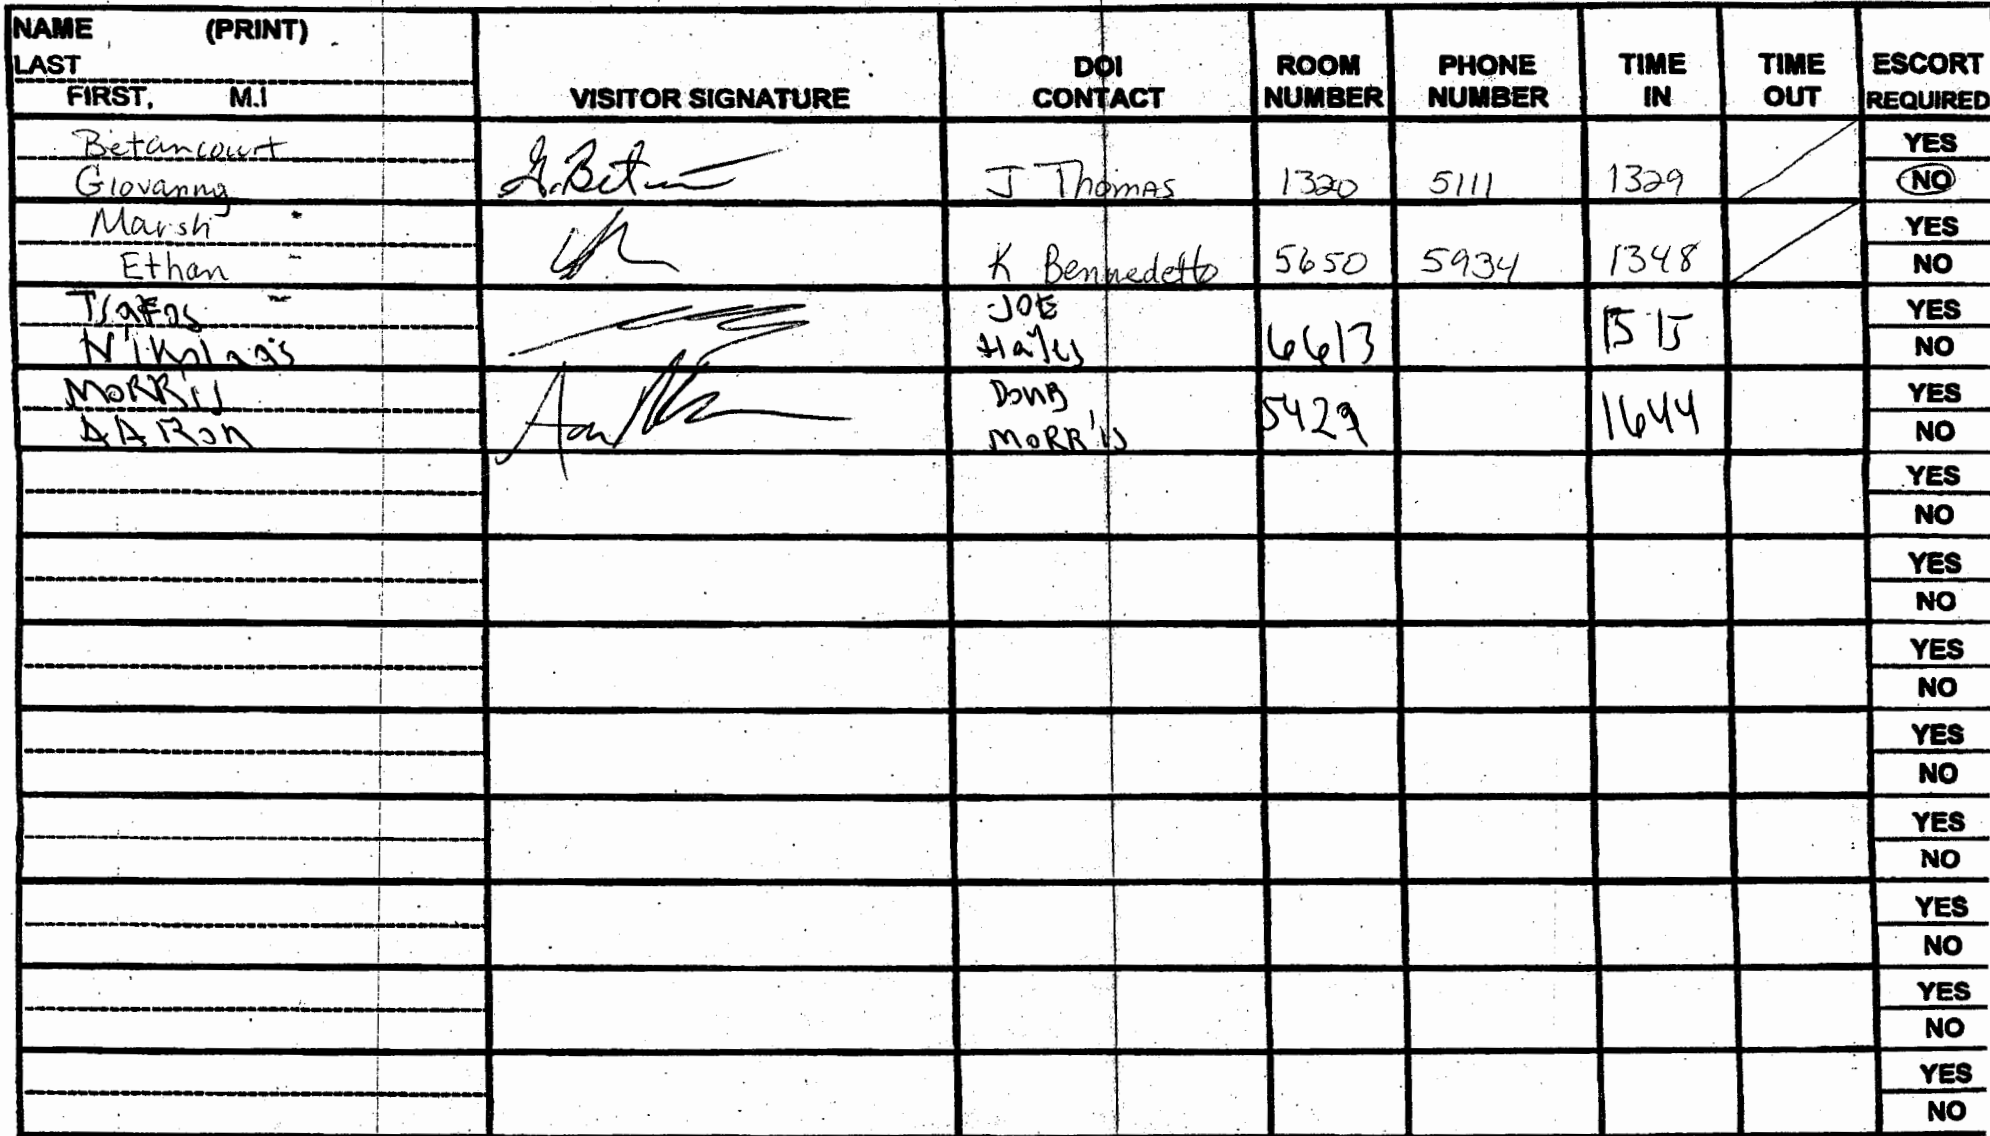 NAME (PRINT)
LAST
FIRST, M.I
VISITOR SIGNATURE
DOI CONTACT
ROOM NUMBER
PHONE NUMBER
TIME IN
TIME OUT
ESCORT REQUIRED
Betancourt
Giovanny
G. Bet
J Thomas
1320
5111
1329
YES
NO
Marsh
Ethan
K Bennedetto
5650
5934
1348
YES
NO
Tsafos
Nikolaos
JOE
Hayes
6613
1515
YES
NO
MORRIS
AARON
DOUG
MORRIS
5429
1644
YES
NO
YES
NO
YES
NO
YES
NO
YES
NO
YES
NO
YES
NO
YES
NO
YES
NO